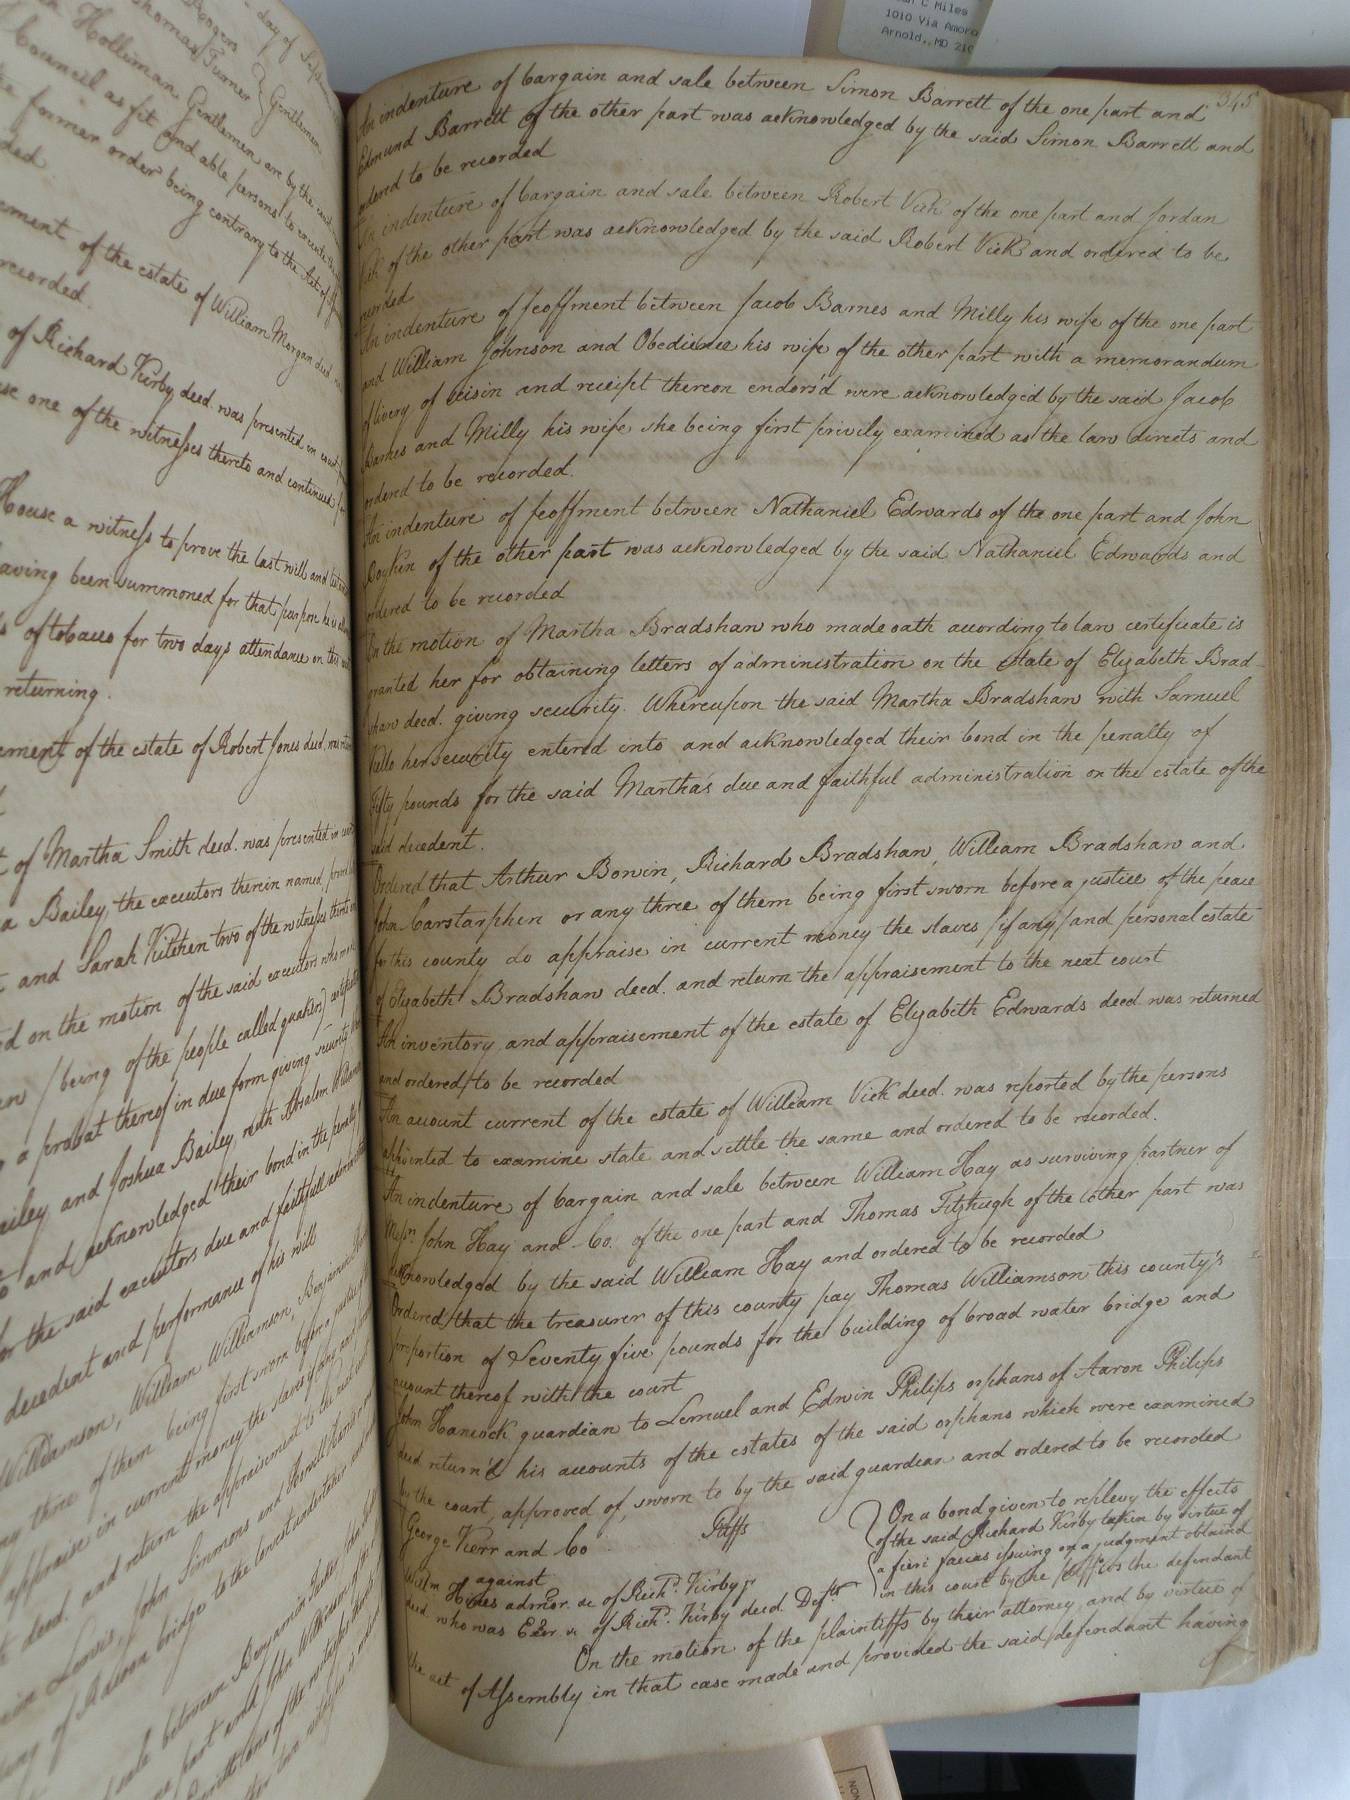 C Miles
1010 Via Amora
Arnold, MD 210
345
An indenture of bargain and sale between Simon Barrett of the one part and
Edmund Barrett of the other part was acknowledged by the said Simon Barrett and
ordered to be recorded
An indenture of bargain and sale between Robert Vick of the one part and Jordan
Vick of the other part was acknowledged by the said Robert Vick and ordered to be
recorded
An indenture of feoffment between Jacob Barnes and Milly his wife of the one part
and William Johnson and Obedience his wife of the other part with a memorandum
of livery of seisin and receipt thereon endors'd were acknowledged by the said Jacob
Barnes and Milly his wife she being first privily examined as the law directs and
ordered to be recorded.
An indenture of feoffment between Nathaniel Edwards of the one part and John
Boykin of the other part was acknowledged by the said Nathaniel Edwards and
ordered to be recorded
On the motion of Martha Bradshaw who made oath according to law certificate is
granted her for obtaining letters of administration on the estate of Elizabeth Brad-
shaw deed. giving security. Whereupon the said Martha Bradshaw with Samuel
Kello her security entered into and acknowledged their bond in the penalty of
Fifty pounds for the said Martha's due and faithful administration on the estate of the
said decedent.
Ordered that Arthur Bowin, Richard Bradshaw, William Bradshaw and
John Carstarphen or any three of them being first sworn before a justice of the peace
for this county do appraise in current money the slaves /if any/ and personal estate
of Elizabeth Bradshaw deed. and return the appraisement to the next court
An inventory and appraisement of the estate of Elizabeth Edwards deed was returned
and ordered to be recorded
An account current of the estate of William Vick deed. was reported by the persons
appointed to examine state and settle the same and ordered to be recorded.
An indenture of bargain and sale between William Hay as surviving partner of
Messrs. John Hay and Co. of the one part and Thomas Fitzhugh of the other part was
acknowledged by the said William Hay and ordered to be recorded
Ordered that the treasurer of this county pay Thomas Williamson this county's
proportion of Seventy five pounds for the building of broad water bridge and
account thereof with the court
John Hancock guardian to Lemuel and Edwin Philips orphans of Aaron Philips
deed return'd his accounts of the estates of the said orphans which were examined
by the court, approved of, sworn to by the said guardian and ordered to be recorded
George Kerr and Co Pltffs
against
Willm Hines admor. &c of Richd. Kirby
deed. who was Exor. &c of Richd. Kirby deed Defts
On a bond given to replevy the effects
of the said Richard Kirby taken by virtue of
a fieri facias issuing on a judgment obtaind
in this court by the pltffs vs the defendant
On the motion of the plaintiffs by their attorney, and by virtue of
the act of Assembly in that case made and provided the said defendant having
day of Sep
Rogers
Thomas Turner } Gentlemen
Holliman Gentlemen are by the court
Council as fit and able persons to execute the
former order being contrary to the Act of
ded
ment of the estate of William Morgan deed
recorded.
of Richard Kirby deed. was presented in court
one of the witnesses thereto and continued for
House a witness to prove the last will and
aving been summoned for that purpose he is
of tobacco for two days attendance on this
returning.
ement of the estate of Robert Jones deed was
of Martha Smith deed. was presented in court
a Bailey, the executors therein named,
and Sarah Kitchen two of the witnesses thereto
on the motion of the said executors who
/being of the people called quakers)
a probat thereof in due form giving security
ailey and Joshua Bailey, with Absalom Williamson
and acknowledged their bond in the penalty
or the said executors due and faithfull
decedent and performance of his will
Williamson, William Williamson, Benjamin
any three of them being first sworn before a justice
appraise in current money the slaves if any
deed. and return the appraisement to the next court
Lewis, John Simmons and
bridge to the lowest undertaker
between Benjamin
part and John Wilkinson of the
one of the witnesses